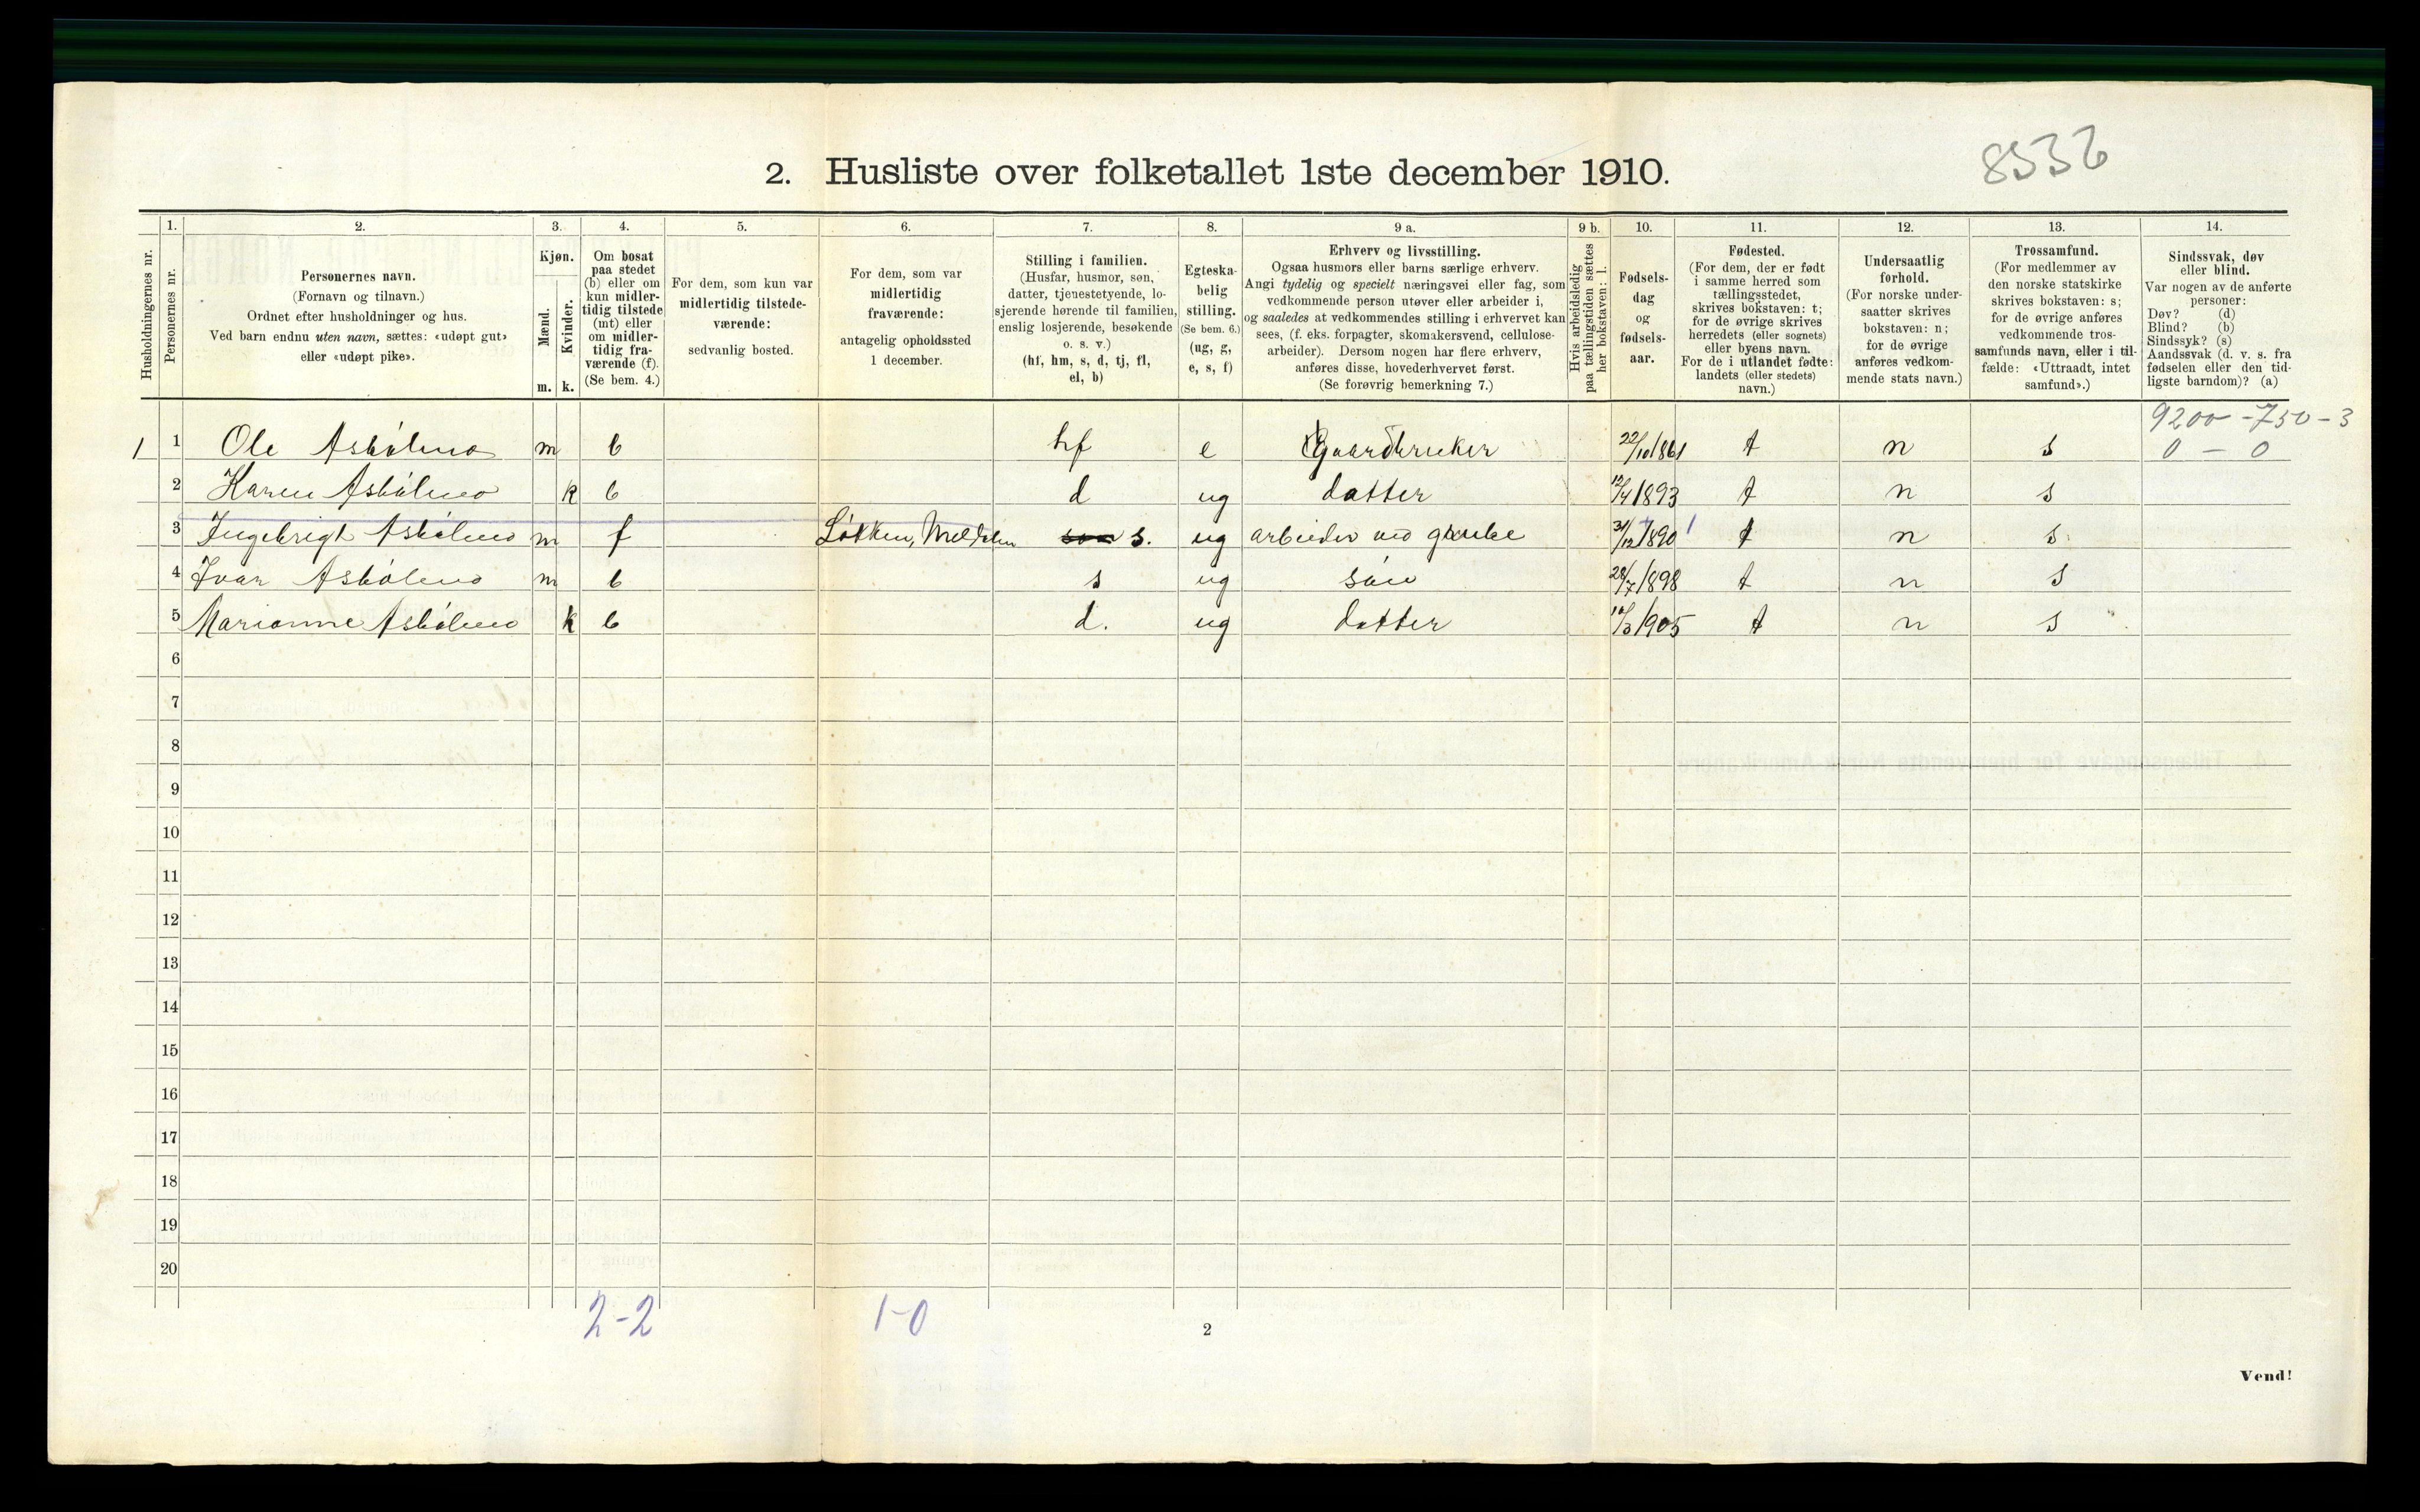 8536
2. Husliste over folketallet 1ste december 1910.
Husholdningernes nr.
1.
Personernes nr.
2.
Personernes navn.
(Fornavn og tilnavn.)
Ordnet efter husholdninger og hus.
Ved barn endnu uten navn, sættes: «udøpt gut»
eller «udøpt pike».
3.
Kjøn.
Mænd.
m.
Kvinder.
k.
4.
Om bosat
paa stedet
(b) eller om
kun midler-
tidig tilstede
(mt) eller
om midler-
tidig fra-
værende (f).
(Se bem. 4.)
5.
For dem, som kun var
midlertidig tilstede-
værende:
sedvanlig bosted.
6.
For dem, som var
midlertidig
fraværende:
antagelig opholdssted
1 december.
7.
Stilling i familien.
(Husfar, husmor, søn,
datter, tjenestetyende, lo-
sjerende hørende til familien,
enslig losjerende, besøkende
o. s. v.)
(hf, hm, s, d, tj, fl,
el, b)
8.
Egteska-
belig
stilling.
(Se bem. 6.)
(ug, g,
e, s, f)
9 a.
Erhverv og livsstilling.
Ogsaa husmors eller barns særlige erhverv.
Angi tydelig og specielt næringsvei eller fag, som
vedkommende person utøver eller arbeider i,
og saaledes at vedkommendes stilling i erhvervet kan
sees, (f. eks. forpagter, skomakersvend, cellulose-
arbeider). Dersom nogen har flere erhverv,
anføres disse, hovederhvervet først.
(Se forøvrig bemerkning 7.)
9 b.
Hvis arbeidsledig
paa tællingstiden sættes
her bokstaven: l.
10.
Fødsels-
dag
og
fødsels-
aar.
11.
Fødested.
(For dem, der er født
i samme herred som
tællingsstedet,
skrives bokstaven: t;
for de øvrige skrives
herredets (eller sognets)
eller byens navn.
For de i utlandet fødte:
landets (eller stedets)
navn.)
12.
Undersaatlig
forhold.
(For norske under-
saatter skrives
bokstaven: n;
for de øvrige
anføres vedkom-
mende stats navn.)
13.
Trossamfund.
(For medlemmer av
den norske statskirke
skrives bokstaven: s;
for de øvrige anføres
vedkommende tros-
samfunds navn, eller i til-
fælde: «Uttraadt, intet
samfund».)
14.
Sindssvak, døv
eller blind.
Var nogen av de anførte
personer:
Døv? (d)
Blind? (b)
Sindssyk? (s)
Aandssvak (d. v. s. fra
fødselen eller den tid-
ligste barndom)? (a)
9200 - 750 - 3
1 1 Ole Asbölmo m b hf e Gaardbruker 22/10 1861 t n s 0 - 0
2 Karen Asbölmo k b d ug datter 12/4 1893 t n s
3 Ingebrigt Asbölmo m f Løkken, Meldalen s. ug arbeider ved grube 31/12 1890 t n s
4 Ivar Asbölmo m b s ug sön 28/7 1898 t n s
5 Marianne Asbölmo k b d. ug datter 1905 t n s
6
7
8
9
10
11
12
13
14
15
16
17
18
19
20
2-2 1-0
2
Vend!